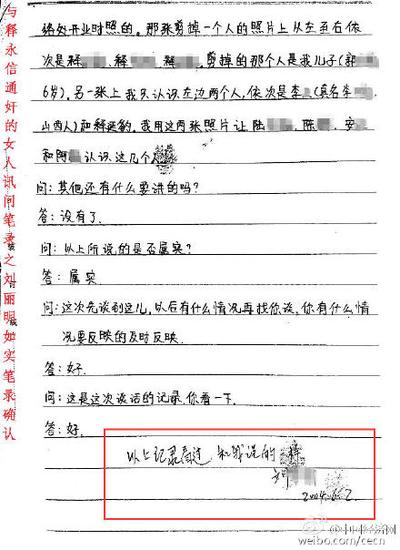 与释永信通奸的女人讯问笔录之刘丽眼如实笔录确认
络处开业时照的。那张剪掉一个人的照片上从左至右依
次是释 、释 、释 ,剪掉的那个人是我儿子(郭
6岁)。另一张上我只认识左边两个人,依次是李 (真名李
山西人)和释延豹。我用这两张照片让陆 、陈 、安
和阿 认识这几个
问:其他还有什么要讲的吗?
答:没有了.
问:以上所说的是否属实?
答:属实
问:这次先谈到这儿,以后有什么情况再找你谈,你有什么情
况要反映的及时反映.
答:好.
问:这是这次谈话的记录.你看一下.
答:好.
以上记录看过 和我说的一样
刘
2004.6.2
weibo.com/cecn